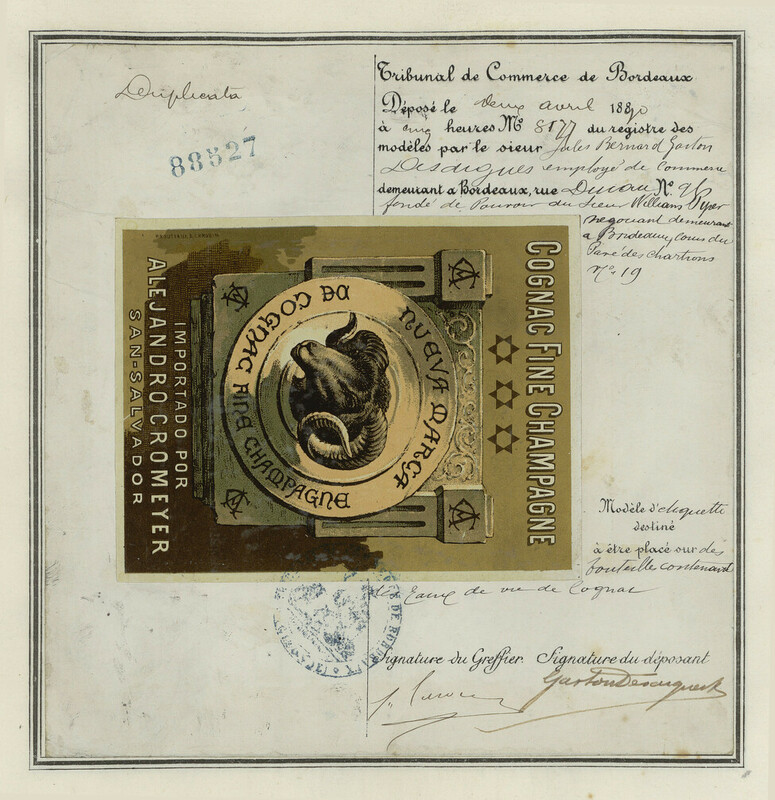 Duplicata
88527
Tribunal de Commerce de Bordeaux
Déposé le deux avril 1880
à cinq heures No 8177 du registre des
modèles par le sieur Jules Bernard Gaston
employé de Commerce
demeurant a Bordeaux, rue No 96
fondé de Pouvoir du Sieur Williams
negociant demeurant
a Bordeaux, Cours du
Pavé des Chartrons
No 19
COGNAC FINE CHAMPAGNE
NUEVA MARCA DE COGNAC FINE CHAMPAGNE
IMPORTADO POR
ALEJANDRO CROMEYER
SAN-SALVADOR
Modèle d'étiquette
destiné
à être placé sur des
bouteille contenant
des Eaux de vie de Cognac
Signature du Greffier Signature du déposant